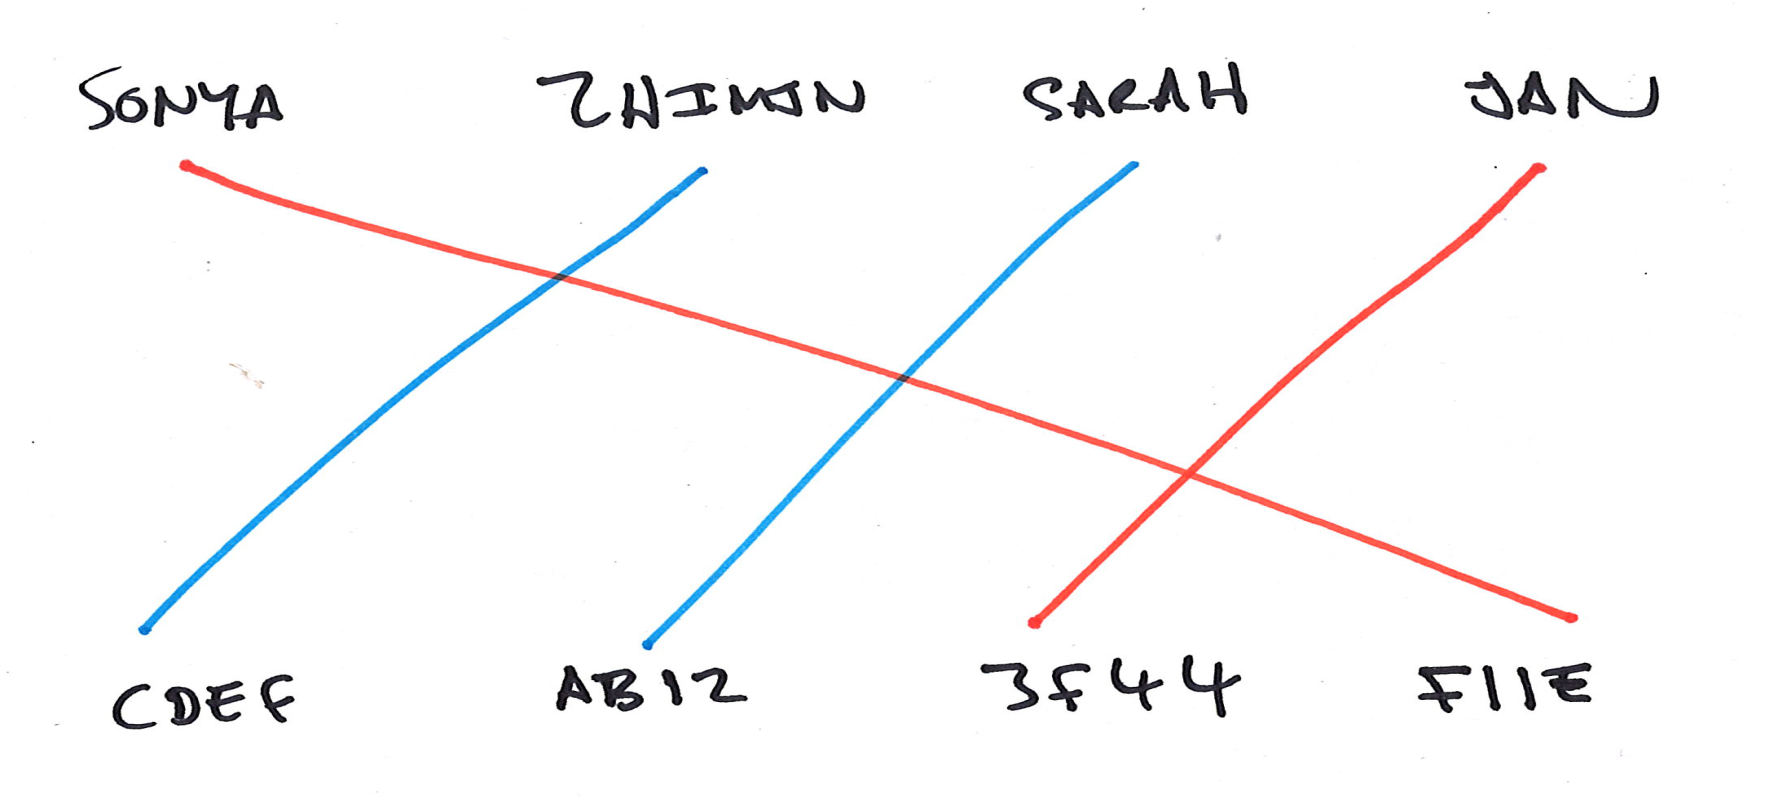 SONYA ZHIMIN SARAH JAN
CDEF AB12 3F44 F11E